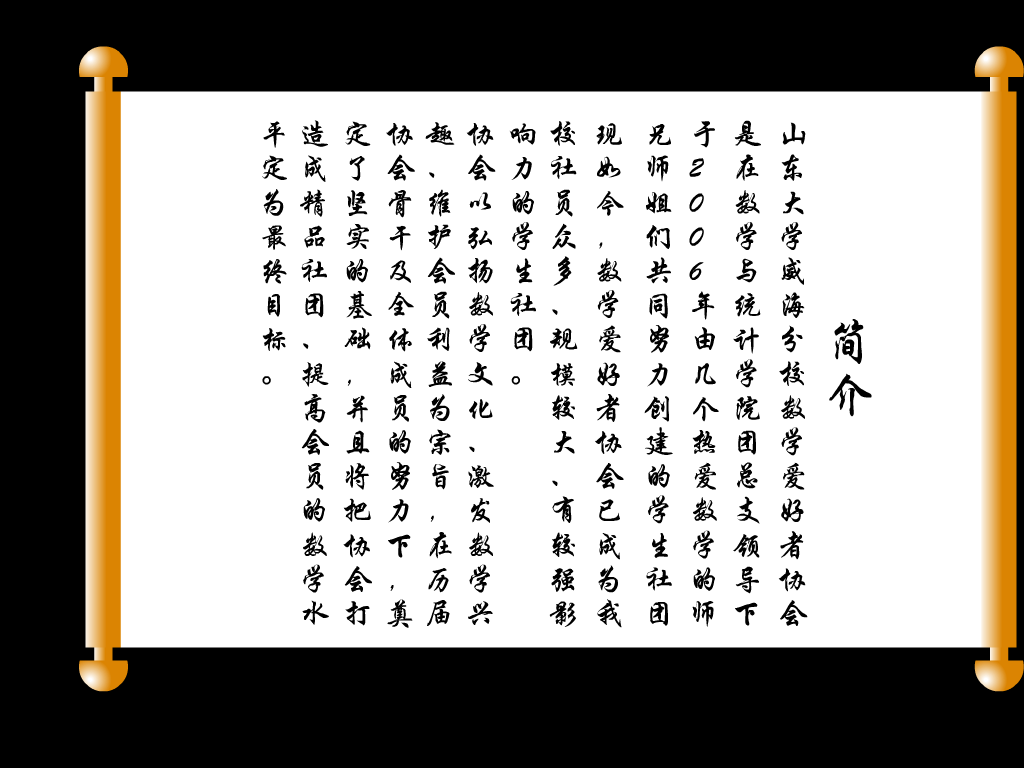 简介
山东大学威海分校数学爱好者协会
是在数学与统计学院团总支领导下
于2006年由几个热爱数学的师
兄师姐们共同努力创建的学生社团
现如今，数学爱好者协会已成为我
校社员众多、规模较大、有较强影
响力的学生社团。
协会以弘扬数学文化、激发数学兴
趣、维护会员利益为宗旨，在历届
协会骨干及全体成员的努力下，奠
定了坚实的基础，并且将把协会打
造成精品社团、提高会员的数学水
平定为最终目标。